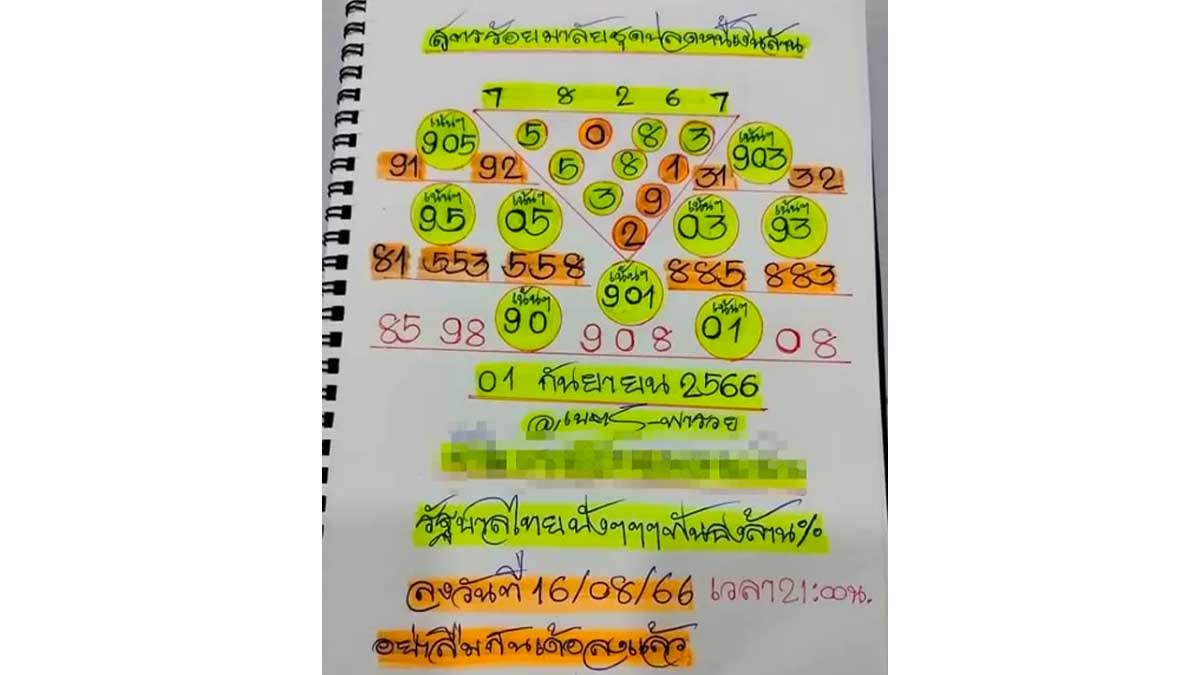 สูตรร้อยมาลัยชุดปลดหนี้เงินล้าน
7 8 2 6 7
5 0 8 3
เน้นๆ 905 เน้นๆ 903
91 92 5 8 1 31 32
3 9
เน้นๆ 95 เน้นๆ 05 เน้นๆ 03 เน้นๆ 93
2
81 553 558 885 883
เน้นๆ 901
85 98 เน้นๆ 90 908 เน้นๆ 01 08
01 กันยายน 2566
รัฐบาลไทยปังๆๆๆฟันธงล้าน%
ลงวันที่ 16/08/66 เวลา21:00น.
อย่าลืมกันเด้อลงแล้ว